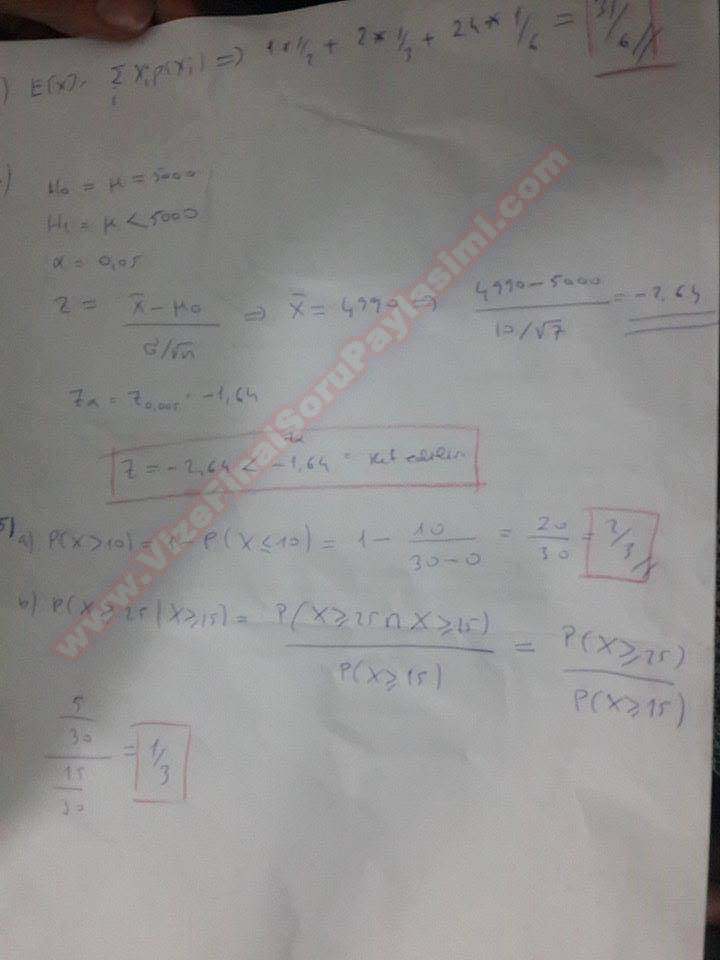 ) E(X) = Σ xi p(xi) => 1*1/2 + 2*1/3 + 24*1/6 = 31/6 //
i
) H0 = μ = 5000
H1 = μ < 5000
α = 0,05
Z = (x̄ - μ0) / (σ/√n) => x̄ = 4990 => (4990-5000) / (10/√7) = -2,64
Zα = Z0,005 = -1,64
Z = -2,64 < -1,64 =
5) a) P(X>10) = 1 - P(X≤10) = 1 - 10/(30-0) = 20/30 = 2/3 //
b) P(X≥25|X≥15) = P(X≥25∩X≥15) / P(X≥15) = P(X≥25) / P(X≥15)
(5/30) / (15/30) = 1/3
www.VizeFinalSoruPaylasimi.com